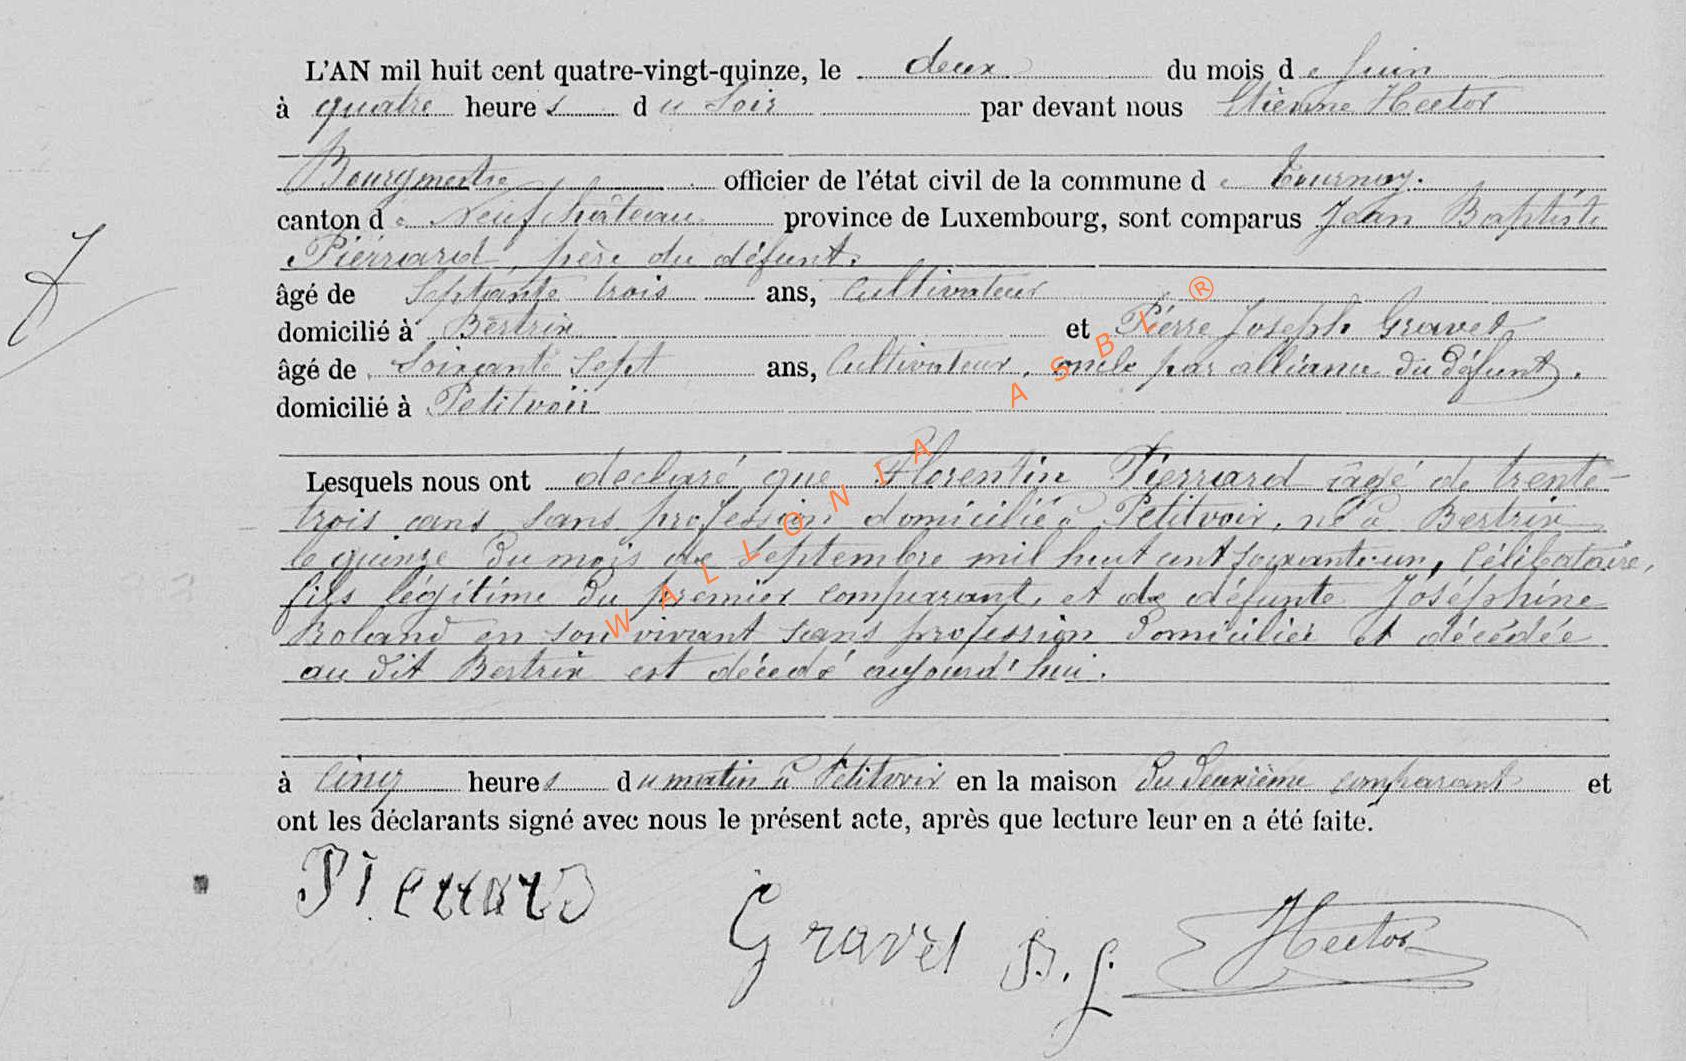 L'AN mil huit cent quatre-vingt-quinze, le deux du mois de Juin
à quatre heures du Soir par devant nous Etienne Hector
Bourgmestre officier de l'état civil de la commune de Tournay.
canton de Neufchâteau province de Luxembourg, sont comparus Jean Baptiste
Piérrard, père du défunt.
âgé de Septante trois ans, Cultivateur
domicilié à Bertrix et Piérre Joseph Gravet
âgé de Soixante Sept ans, Cultivateur, oncle par alliance du défunt.
domicilié à Petitvoir
Lesquels nous ont declaré que Florentin Pierrard âgé de trente-
trois ans sans profession domicilié à Petitvoir, né à Bertrix
le quinze du mois de Septembre mil huit cent soixante-un, Célibataire,
fils légitime du premier comparant, et de défunte Joséphine
Roland en son vivant sans profession domiciliée et décédée
au dit Bertrix est décédé aujourd'hui.
à Cinq heures du matin à Petitvoir en la maison du deuxième comparant et
ont les déclarants signé avec nous le présent acte, après que lecture leur en a été faite.
Pierrard
Gravet P. J. Hector
WALLONIA ASBL ®